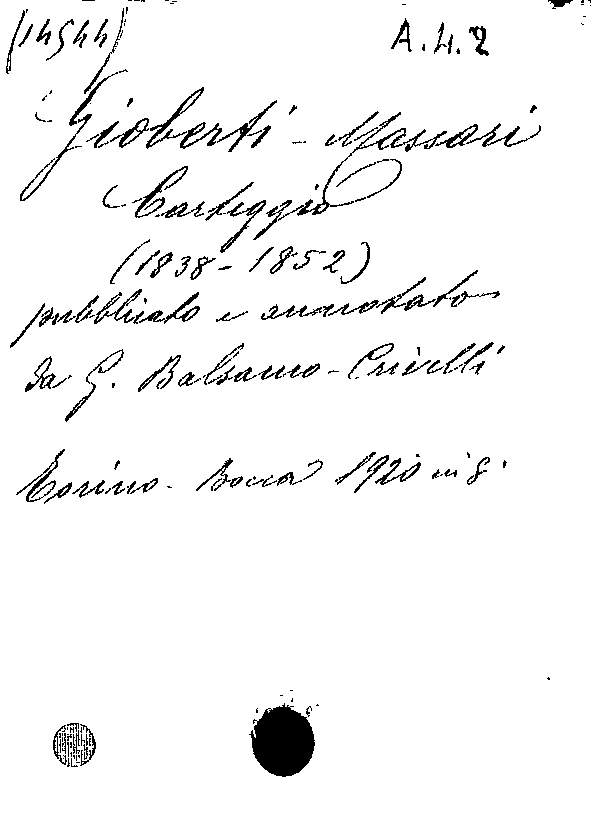 (14544) A.4.2
Gioberti - Massari
Carteggio
(1838 - 1852)
pubblicato e annotato
da G. Balsamo-Crivelli
Torino - Bocca 1920 in 8.